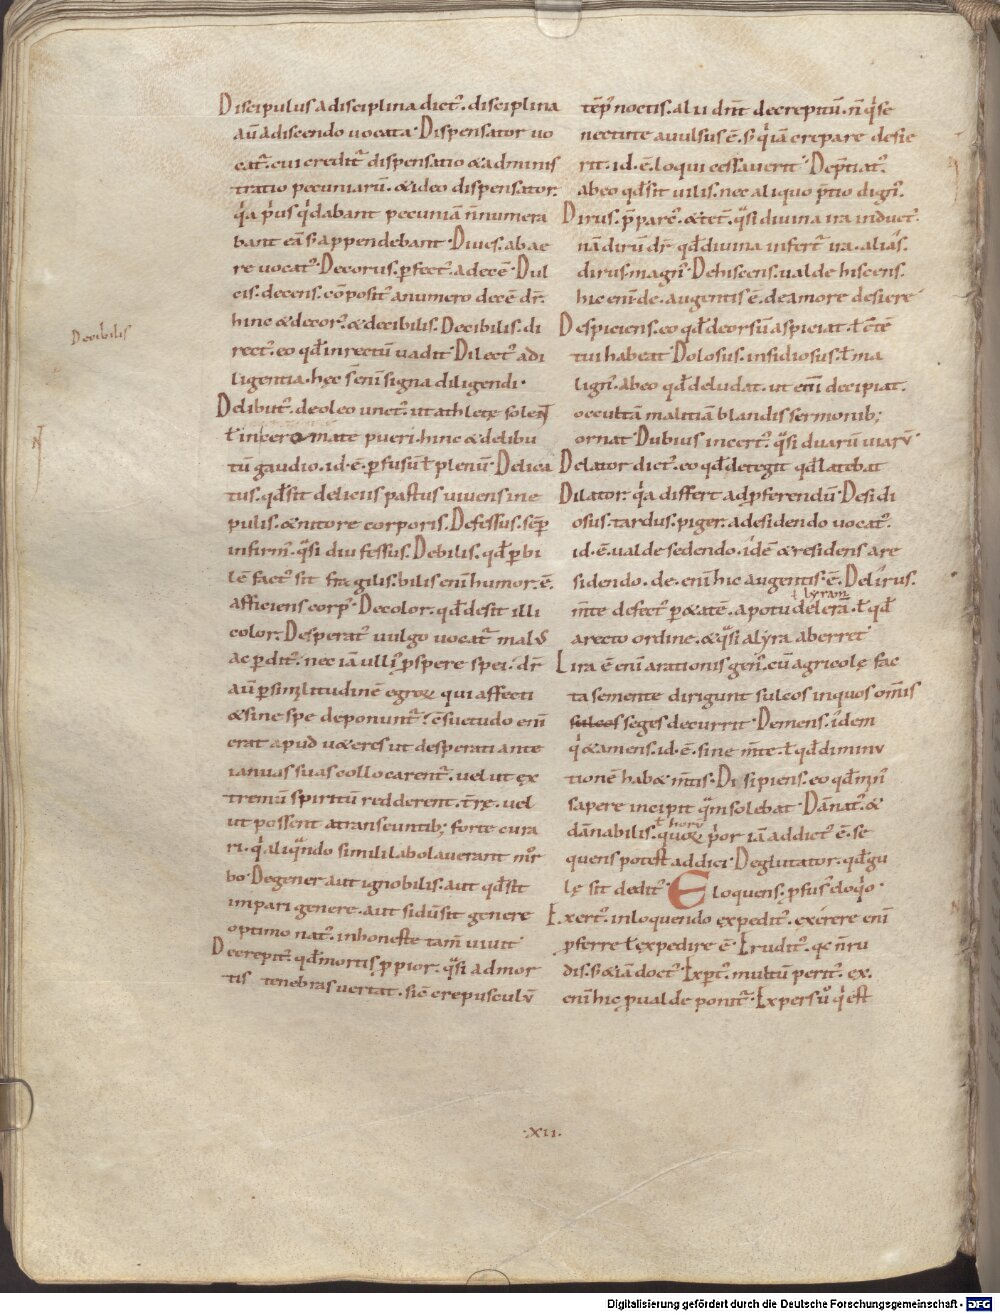 Discipulus a disciplina dict᷒. disciplina
aū a discendo uocata. Dispensator uo
cat᷒. cui credit᷒ dispensatio & adminis
tratio pecuniarū. & ideo dispensator.
qͥa pͥus qͥ dabant pecuniā ñ numera
bant eā s; appendebant. Diues. ab ae
re uocat᷒. Decorus. ꝑfect᷒. a decē. Dul
cis. decens. cōposit᷒ a numero decē dr̄.
hinc & decor᷒. & decibilis. Decibilis. di
rect᷒. eo qđ in rectū uadit. Dilect᷒ a di
ligentia. hęc s̄ enī signa diligendi.
Delibut᷒. de oleo unct᷒. ut athletę solent
ł in ceromate pueri. hinc & delibu
tū gaudio. id. ē. ꝑfusū ł plenū. Delica
tus. qđ sit deliciis pastus uiuens in e
pulis. & nitore corporis. Defessus. semꝑ
infirm᷒. qͣsi diu fessus. Debilis. qđ ꝑ bi
lē fact᷒ sit fragilis. bilis enī humor. ē.
afficiens corp᷒. Decolor. qđ desit illi
color. Desperat᷒ uulgo uocat᷒ mal᷒
ac ꝑdit᷒. nec iā ulli᷒ ꝓspere spei. dr̄
aū ꝑ similitudinē egroꝝ qui affecti
& sine spe deponunt᷒. c̄suetudo enī
erat apud ueteres ut desperati ante
ianuas suas collocarent᷒. uel ut ex
tremū spiritū redderent. t̄rę. uel
ut possent a transeuntib; forte cura
ri. qͥ aliqͣndo simili labolauerant mor
bo. Degener aut ignobilis. aut qđ sit
impari genere. aut si dū sit genere
optimo nat᷒. inhoneste tam̄ uiuit.
Decrepit᷒. qđ morti sͥ ꝓpior. qͣsi ad mor
tis tenebras uertat. sic̄ crepusculū
Decibilis
tēp᷒ noctis. alii dn̄t decrepitū. ñ qͥ se
nectute auulsus ē. s; qͥ iā crepare desie
rit. id. ē. loqui cessauerit. Dep̄tiat᷒.
ab eo qđ sit uilis. nec aliquo p̄tio dign᷒.
Dirus. p̄par᷒. & tet᷒. qͣsi diuina ira induct᷒.
nā dirū dr̄ qđ diuina infert᷒ ira. alias.
dirus. magn᷒. Dehiscens. ualde hiscens.
hic enī de. augentis ē. de amore desiere
Despiciens. eo qđ deorsū aspiciat. ł c̄tē
tui habeat. Dolosus. insidiosus. ł ma
lign᷒. ab eo qđ deludat. ut enī decipiat.
occultā malitiā blandis sermonib;
ornat. Dubius incert᷒. qͣsi duarū uiarū.
Delator dict᷒. eo qđ detegit qđ latebat
Dilator. qͥa differt ad ꝓferendū. Desidi
osus. tardus. piger. a desidendo uocat᷒.
id. ē. ualde sedendo. idē & residens a re
sidendo. de. enī hic augentis. ē. Delirus.
ł lyram
m̄te defect᷒ ꝑ &atē. apotu delerā. ł qđ
a recto ordine. & qͣsi a lyra aberret.
Lira ē enī arationis gen᷒. cū agricolę fac
ta semente dirigunt sulcos in quos om̄is
sulcos seges decurrit. Demens. idem
qͥ & amens. id. ē. sine m̄te. ł qđ diminu
tionē hab& m̄tis. Disipiens. eo qđ min᷒
sapere incipit qͣm solebat. Dānat᷒. &
ł horū
dānabilis. quoꝝ pͥor iā addict᷒ ē. se
quens potest addici. Deglutator. qđ gu
lę sit dedit᷒. Eloquens. ꝓfus᷒ eloqͥo.
Exert᷒. in loquendo expedit᷒. exerere enī
ꝓferre ł expedire ē. Erudit᷒. qͥ ñ ru
dis. s; & iā doct᷒. Expert᷒. multū perit᷒. ex.
enī hic ꝓ ualde ponit᷒. Expers ū qͥ est
.xii.
Digitalisierung gefördert durch die Deutsche Forschungsgemeinschaft - DFG